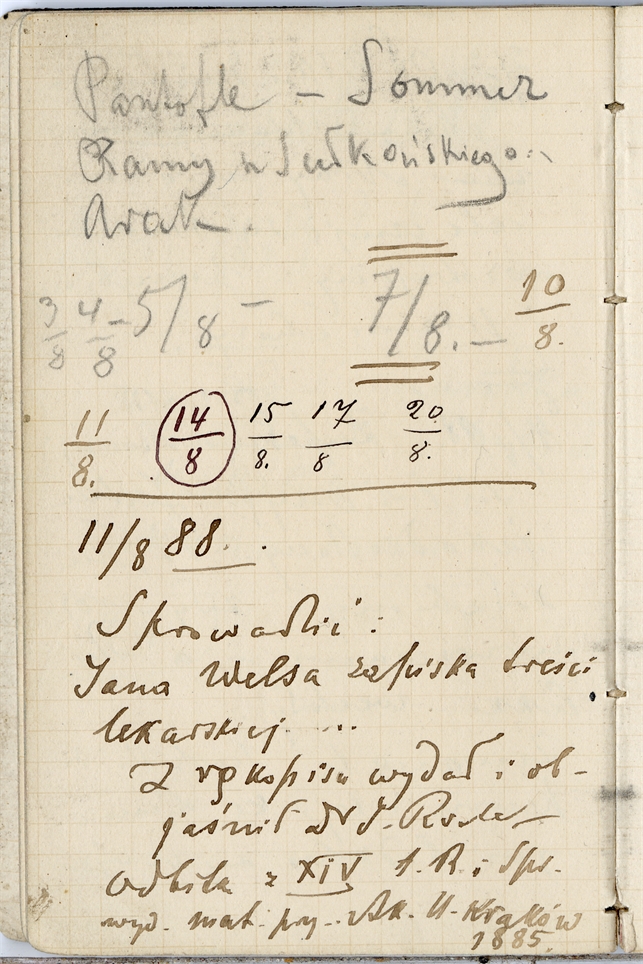 Pantofle – Sommer
Ramy u Sułkońskiego..
Arak.
3/8 4/8 – 5/8 – 7/8. – 10/8.
11/8. 14/8 15/8. 17/8 20/8.
11/8 88.
Sprowadzić:
Jana Welsa zapiska treści
lekarskiej....
Z rękopisu wydał i ob-
jaśnił Dr J.
Odbitka z XIV t. R. i Spr.
wyd. mat. prz. Ak. U. Kraków
1885.